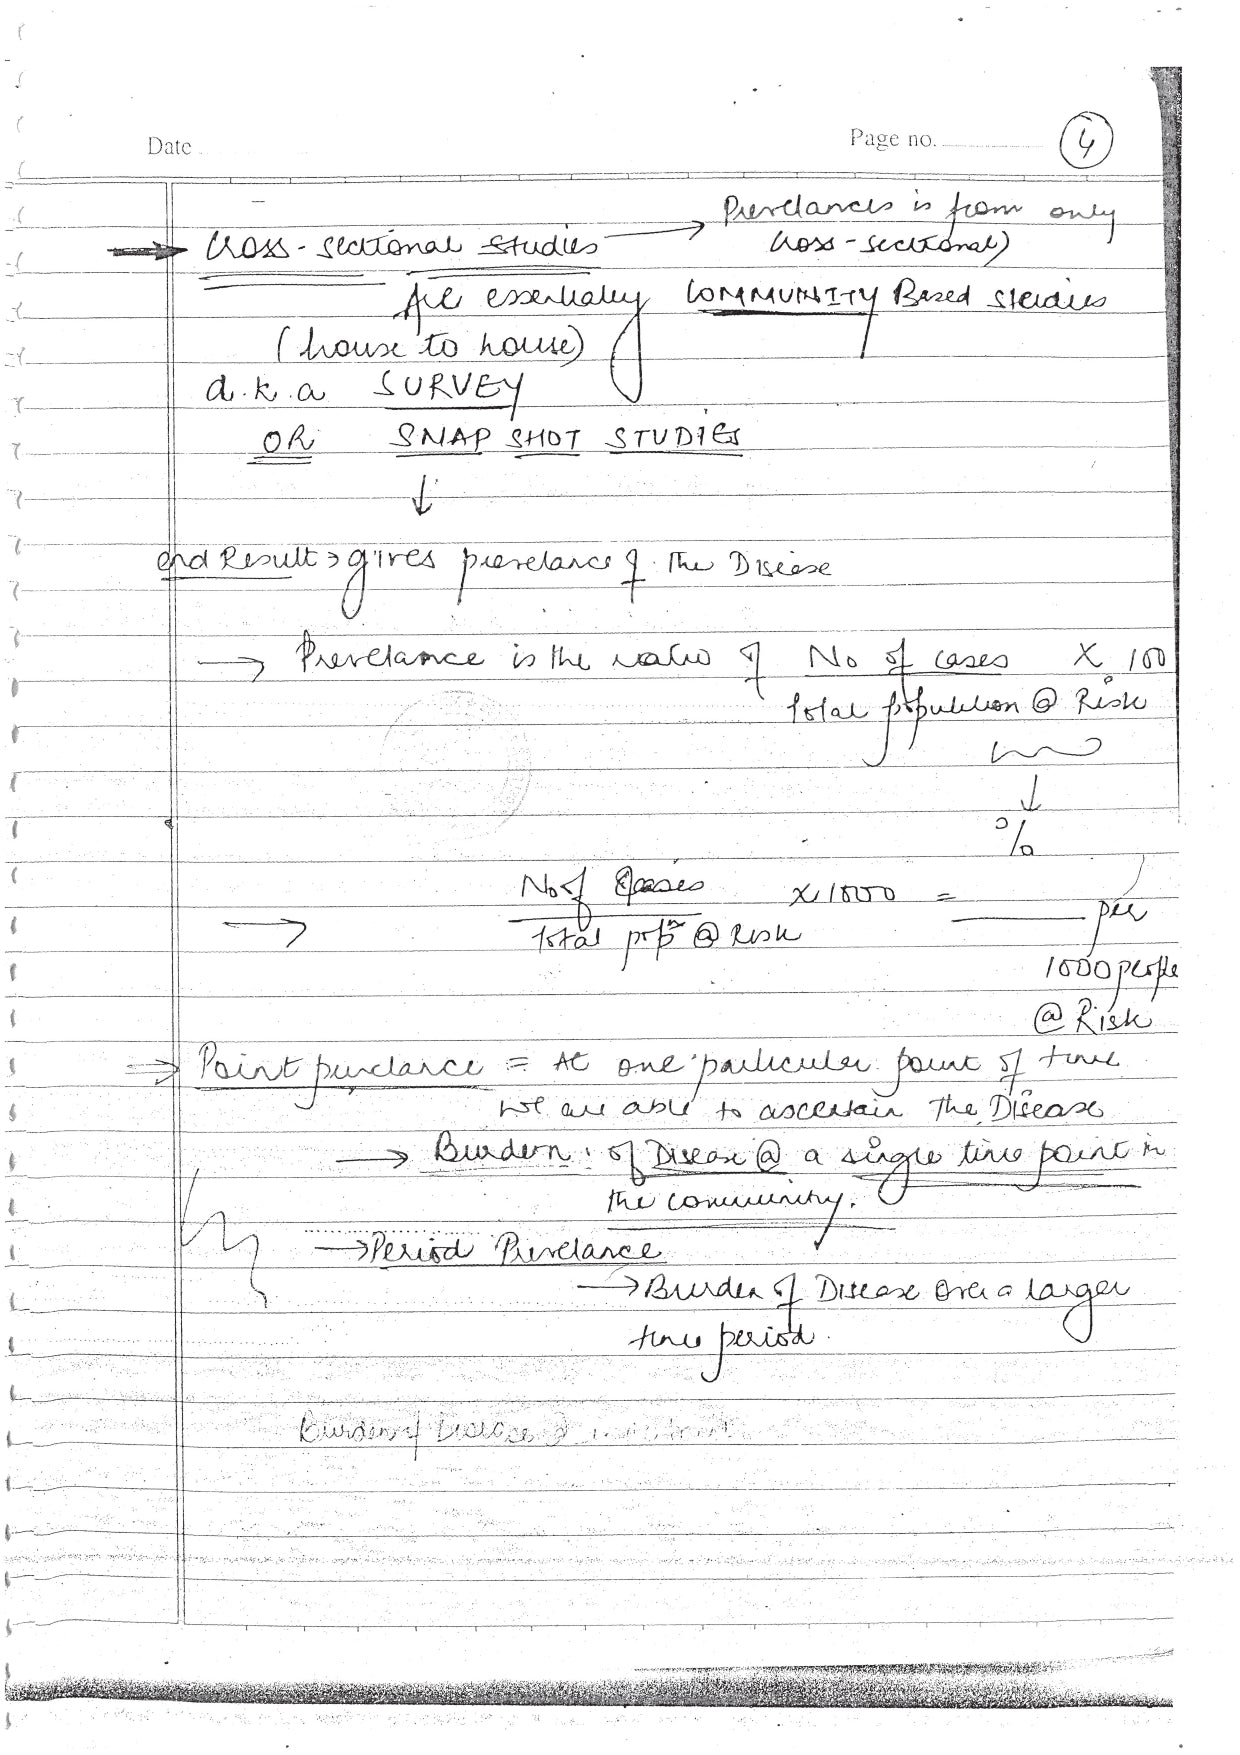 Date
Page no. 4
Prevelances is from only
→ Cross-sectional studies → cross-sectional)
Are essentially COMMUNITY Based studies
(house to house)
a.k.a SURVEY
OR SNAP SHOT STUDIES
↓
end Result → gives prevelance of the Disease
→ Prevelance is the ratio of No of cases X 100
total population @ Risk
↓
%
No of cases X 1000 = ______ per
→ total popn @ Risk
1000 people
@ Risk
⇒ Point prevelance = At one particular point of time
we are able to ascertain the Disease
→ Burden of Disease @ a single time point in
the community.
→ Period Prevelance
→ Burden of Disease over a larger
time period.
Burden of Disease